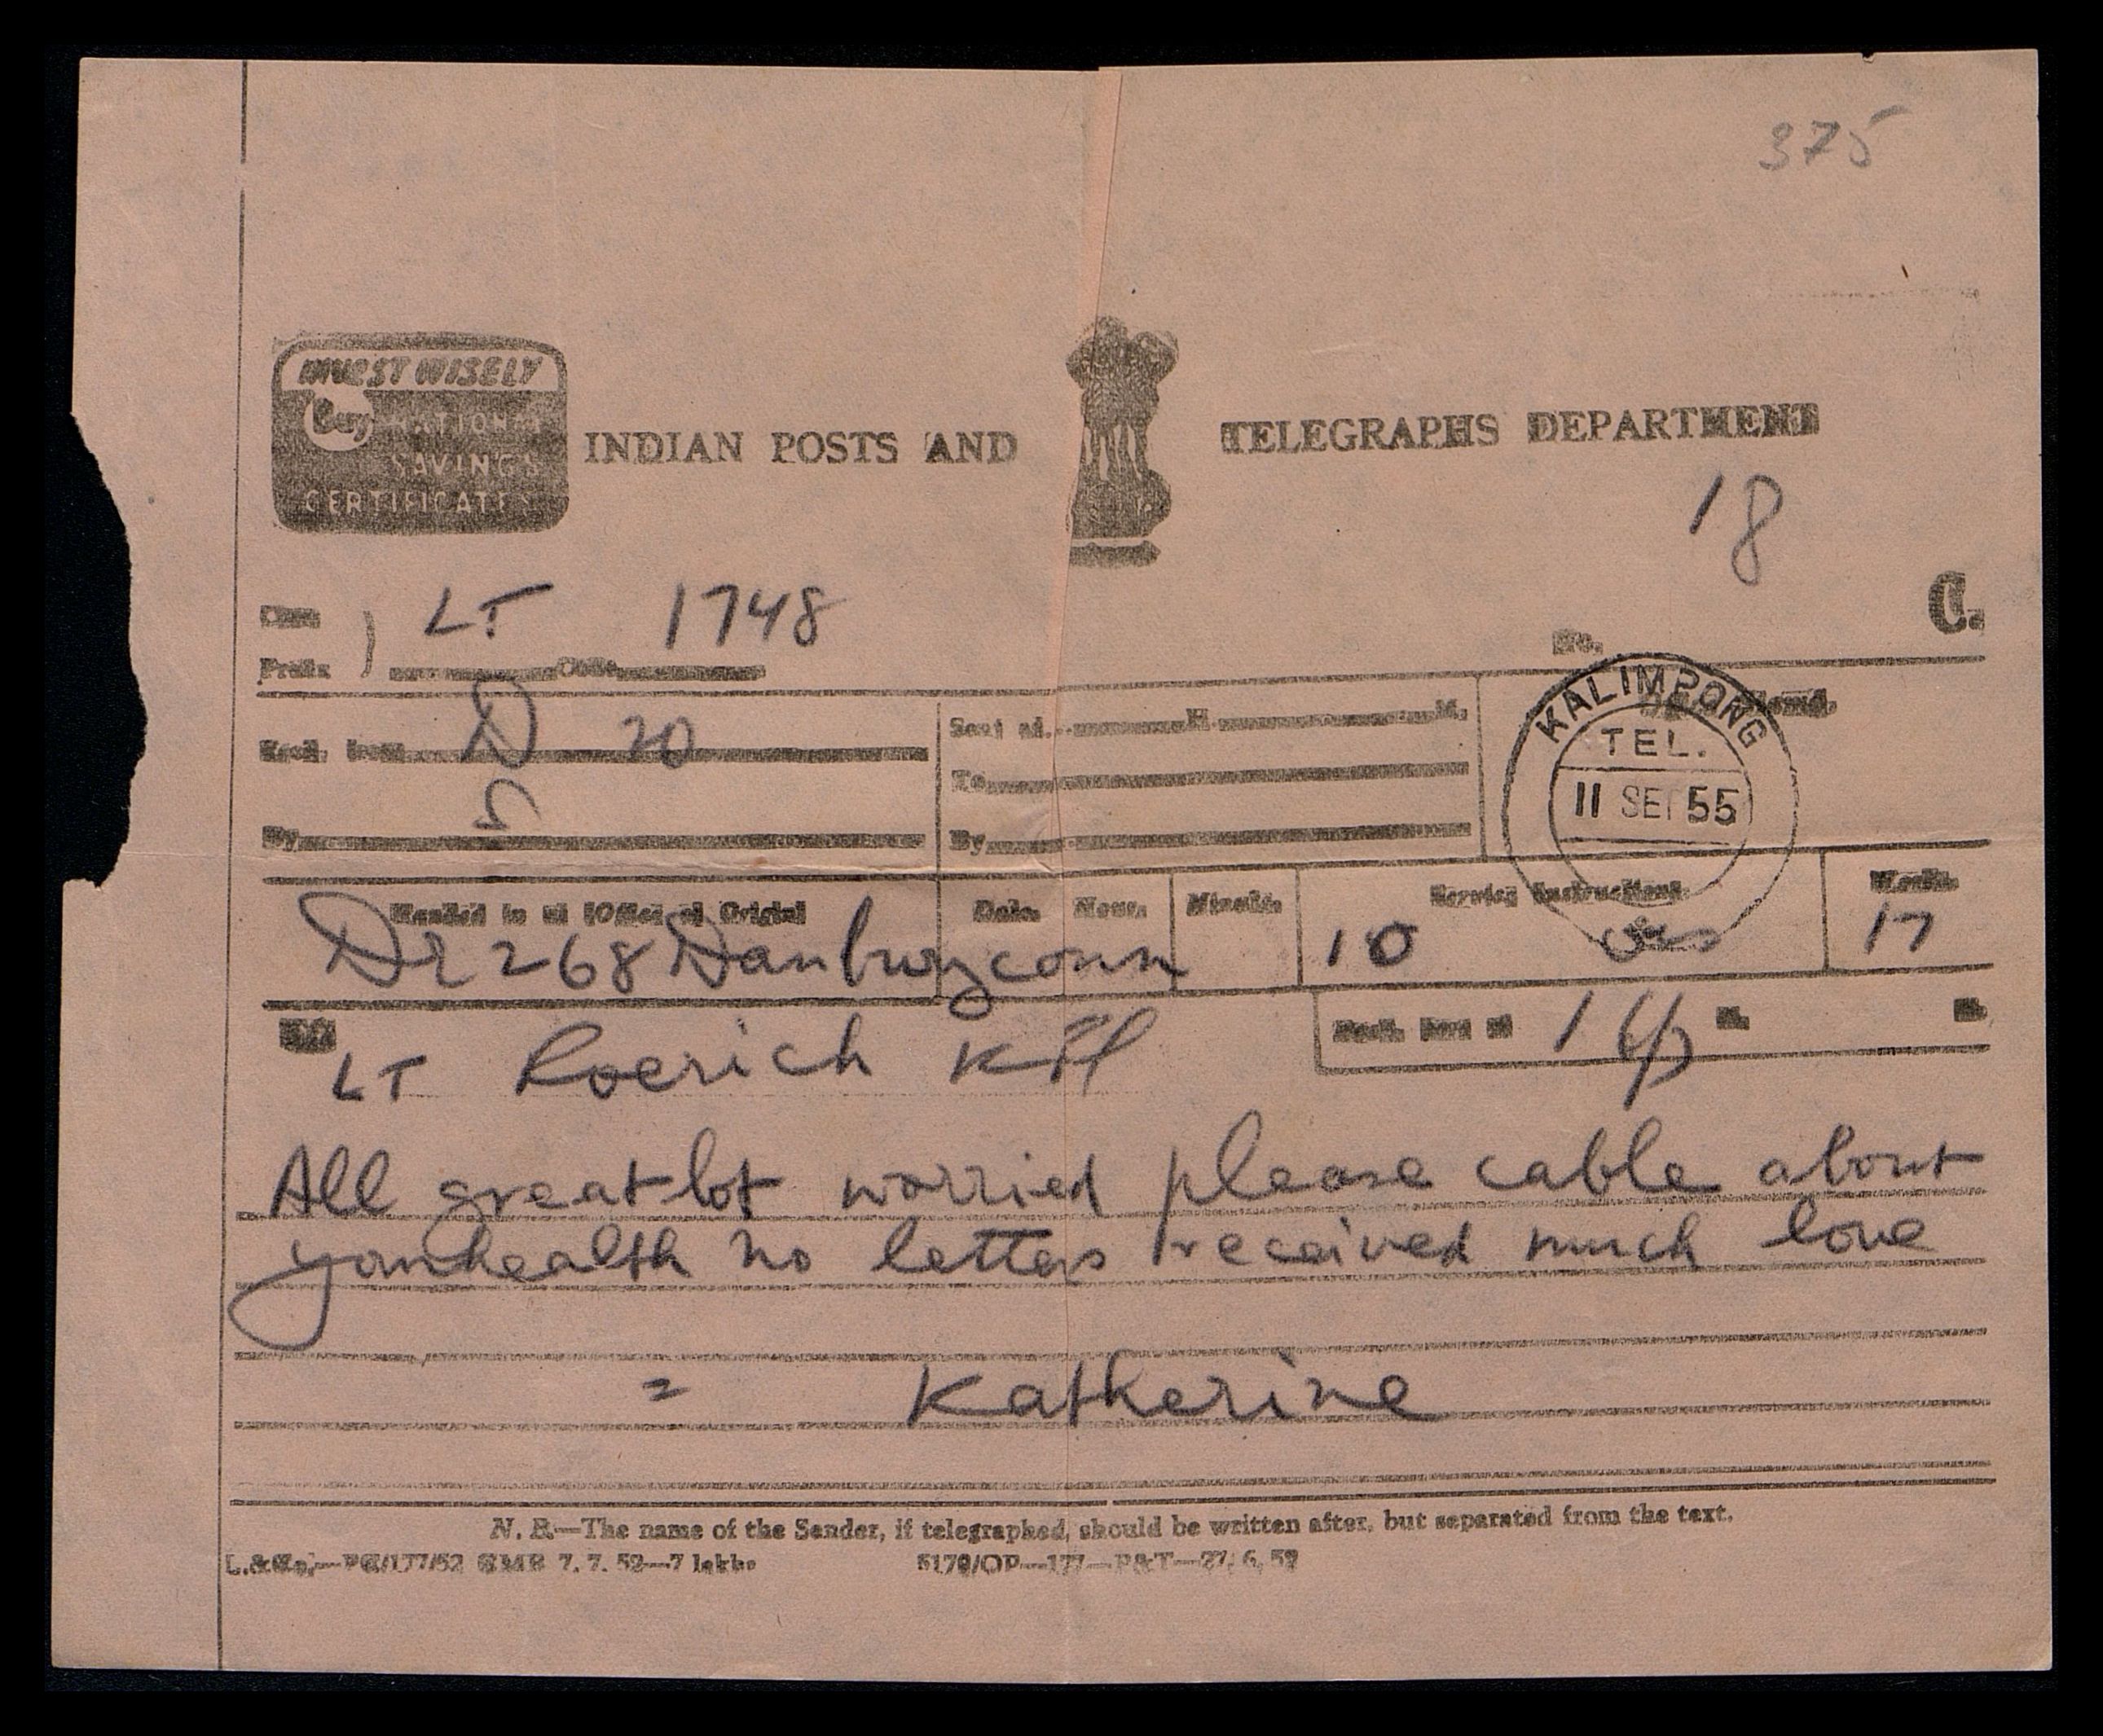 375
INVEST WISELY
Buy NATIONAL
SAVINGS
CERTIFICATES
INDIAN POSTS AND TELEGRAPHS DEPARTMENT
18
C.
Class LT 1748
Prefix Code No.
KALIMPONG
TEL.
11 SEP 55
Recd. from D 20 Sent at H. M.
S To
By By
Handed in at (Office of Origin) Date Hour Minute Service Instructions Words
De 268 Danburyconn 10 17
Recd. here at H. M.
To
LT Roerich
All great lot worried please cable about
yourhealth no letters received much love
= Katherine
N. B.—The name of the Sender, if telegraphed, should be written after, but separated from the text.
7. 7. 52—7 lakhs 5179/OP—177—P&T—27. 6. 52